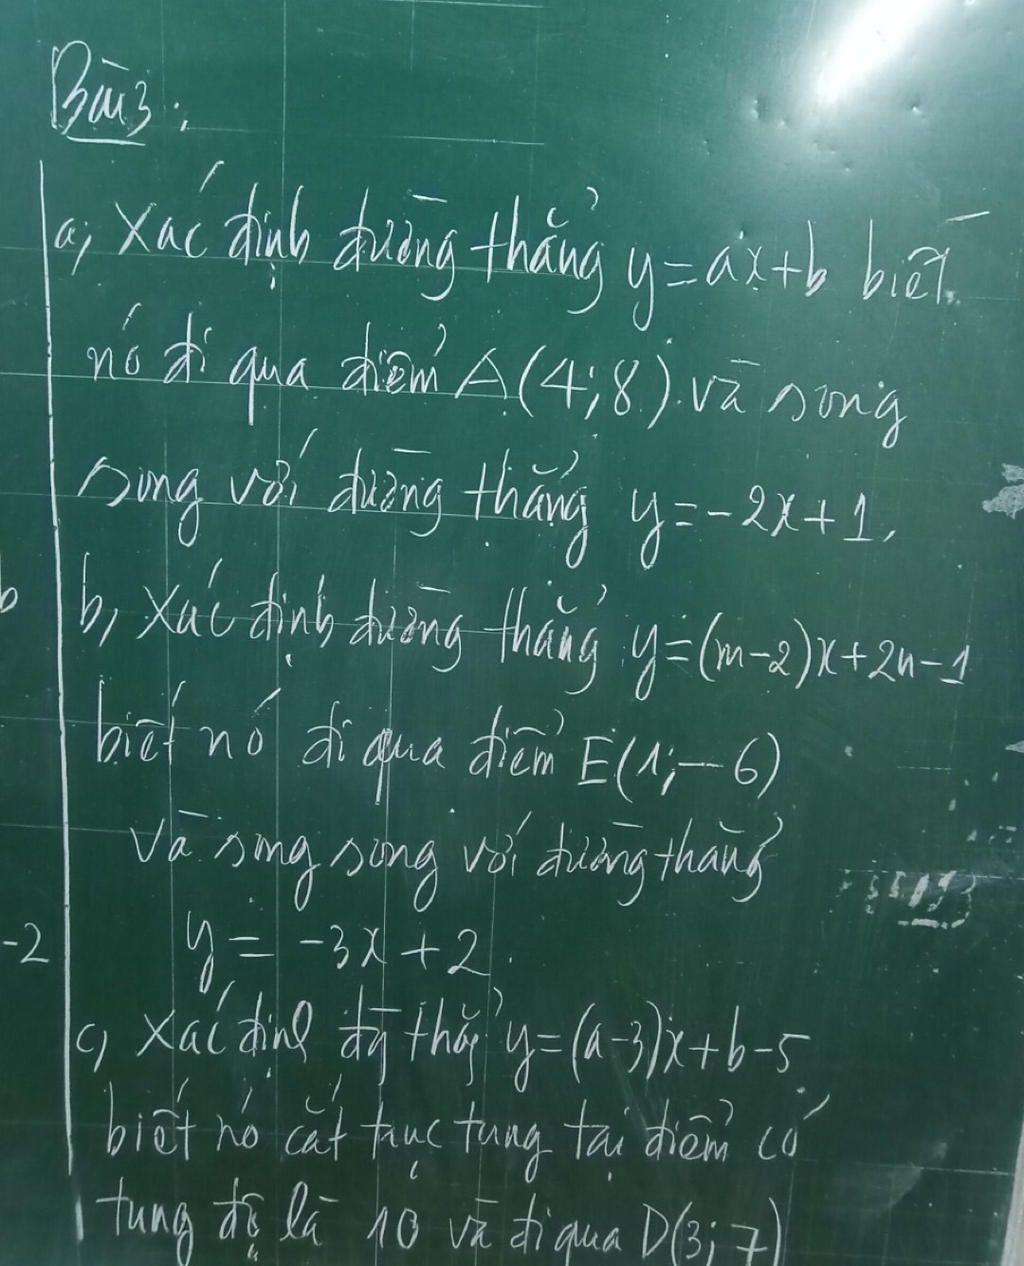 Bài 3:
a, Xác định đường thẳng y=ax+b biết
nó đi qua điểm A(4;8) và song
song với đường thẳng y=-2x+1.
b, Xác định đường thẳng y=(m-2)x+2n-1
biết nó đi qua điểm E(1;-6)
và song song với đường thẳng
-2
y= -3x+2.
c, Xác định đg thẳg y=(a-3)x+b-5
biết nó cắt trục tung tại điểm có
tung độ là 10 và đi qua D(3;7)